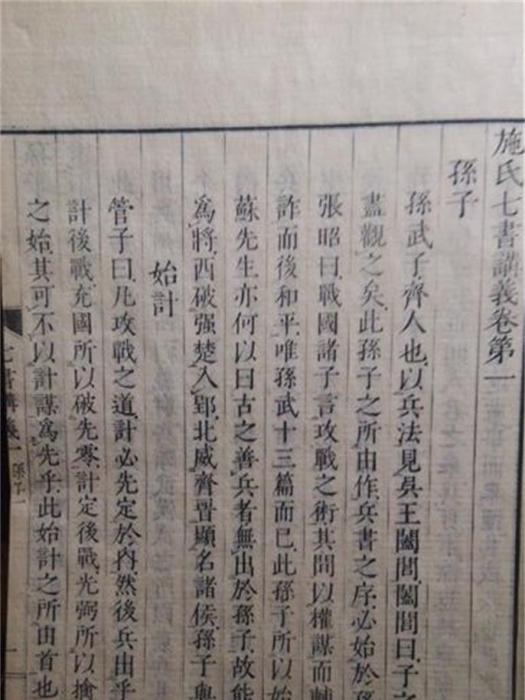 施氏七書講義卷第一
孫子
孫武子齊人也以兵法見吳王闔閭闔閭曰子之
盡觀之矣此孫子之所由作兵書之序必始於孫
張昭曰戰國諸子言攻戰之術其間以權謀而輔
詐而後和平唯孫武十三篇而已此孫子所以始
蘇先生亦何以曰古之善兵者無出於孫子故能
為將西破强楚入郢北威齊晉顯名諸侯孫子與
始計
管子曰凡攻戰之道計必先定於內然後兵出乎
計後戰充國所以破先零計定後戰光弼所以擒
之始其可不以計謀為先乎此始計之所由首也
七書講義一 孫子一